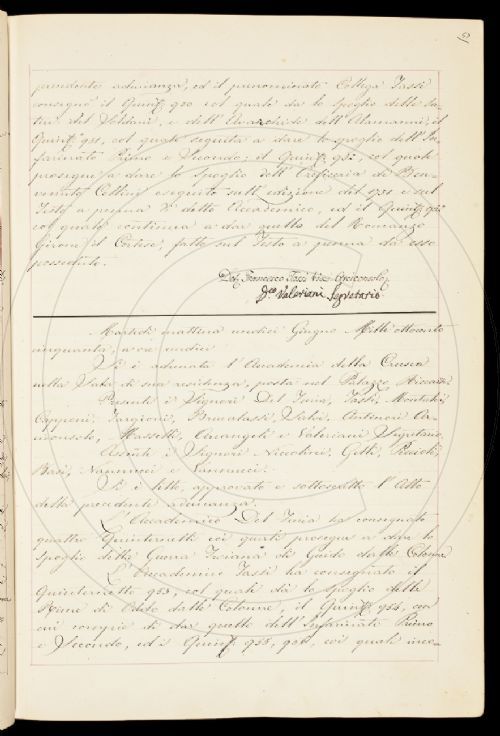 precedente adunanza, ed il prenominato Collega Tassi
consegnò il Quint. 930 col quale dà lo Spoglio delle Sa-
tire del Soldani, e dell' Avarchide dell' Alamanni; il
Quint. 931, col quale seguita a dare lo Spoglio dell' In-
farinato Primo e Secondo; il Quint. 932, col quale
prosegue a dare lo Spoglio dell' Oreficeria di Ben-
venuto Cellini eseguito sull' edizione del 1731 e sul
Testo a penna di detto Accademico, ed il Quint.
col quale continua a dar quello del Romanzo
Girone il Cortese, fatto sul Testo a penna da esso
posseduto.
Dott. Francesco Tassi Vice Arciconsolo
Valeriani Segretario
Martedì mattina undici Giugno Mille ottocento
cinquanta, a ore undici
Si è adunata l' Accademia della Crusca
nella Sala di sua residenza, posta nel Palazzo Riccardi
Presenti i Signori Del Furia, Tassi, Montalvi,
Capponi, Targioni, Brucalassi, Salvi, Antinori Ar-
ciconsolo, Masselli, Arcangeli e Valeriani Segretario.
Assenti i Signori Niccolini, Gelli,
Basi, Nannucci e Vannucci.
Si è letto, approvato e sottoscritto l' Atto
della precedente adunanza.
L' Accademico Del Furia ha consegnato
quattro Quinternetti coi quali prosegue a dare lo
Spoglio della Guerra Troiana di Guido dalle Colonne
L' Accademico Tassi ha consegnato il
Quinternetto 953, col quale dà lo Spoglio delle
Rime di Odo dalle Colonne, il Quint. 954, con
cui compie di dar quello dell' Infarinato Primo
e Secondo, ed i Quint. 955, 956, coi quali inco-